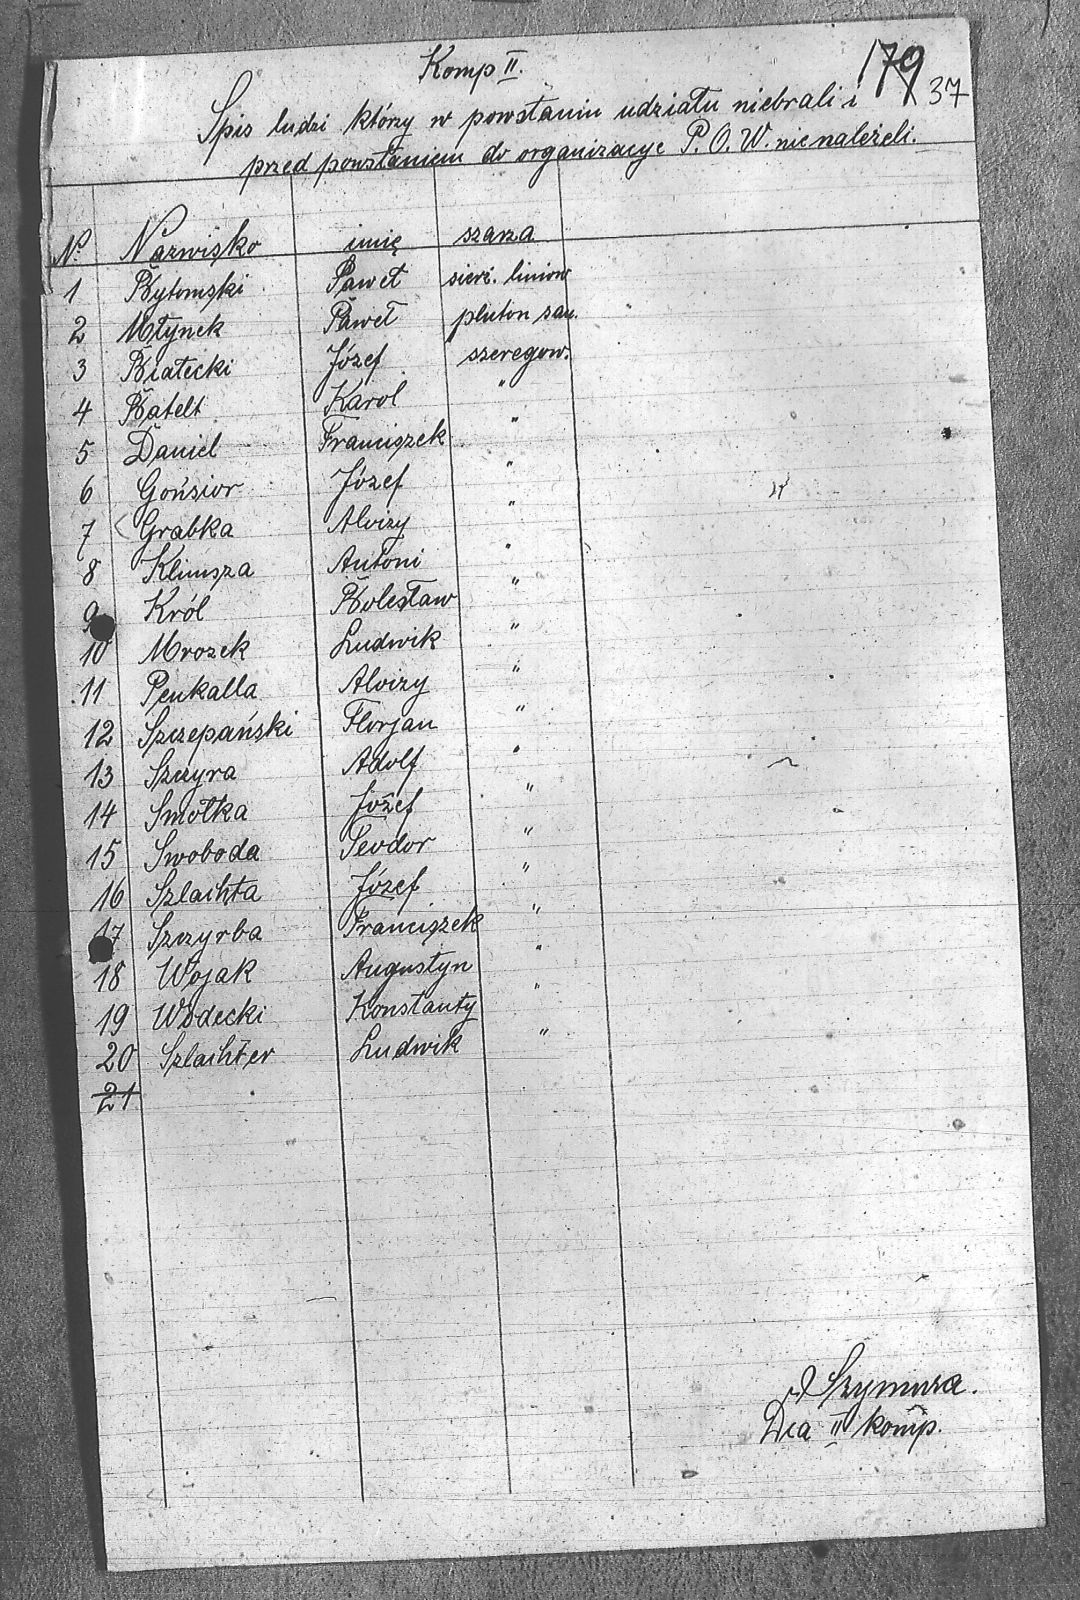 Komp II.
179 37
Spis ludzi którzy w powstaniu udziału niebrali i
przed powstaniem do organizacye P. O. W. nie należeli.
No Nazwisko imię szarża
1 Bytomski Paweł sierż. liniow
2 Młynek Paweł pluton san.
3 Białecki Józef szeregow.
4 Batelt Karol "
5 Daniel Franciszek "
6 Gońsior Józef "
7 Grabka Alvizy "
8 Klimsza Antoni "
9 Król Bolesław "
10 Mrozek Ludwik "
11 Penkalla Alvizy "
12 Szczepański Florjan "
13 Szczyra Adolf "
14 Smołka Józef "
15 Swoboda Teodor "
16 Szlachta Józef "
17 Szczyrba Franciszek "
18 Wojak Augustyn "
19 Wodecki Konstanty "
20 Szlachter Ludwik "
21
Szymura.
Dca II komp.